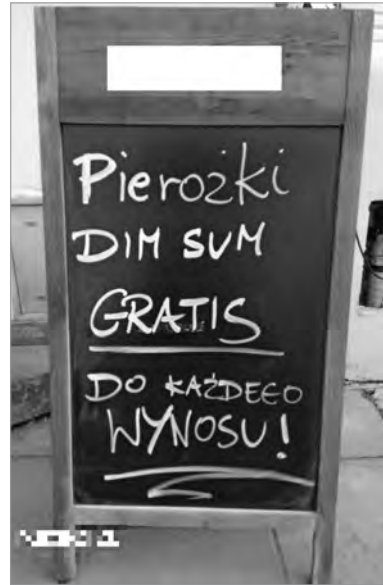 Pierożki
DIM SUM
GRATIS
DO KAŻDEGO
WYNOSU!